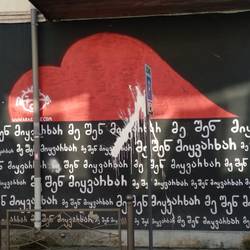 შენ მიყვარხარ მე შენ მიყვარხარ
მე შენ მიყვარხარ მე შენ
შენ მიყვარხარ მე შენ მიყვარხარ
მე შენ მიყვარხარ მე შენ მიყვარხარ
შენ მიყვარხარ მე შენ მიყვარხარ
მე შენ მიყვარხარ მე შენ მიყვარხარ